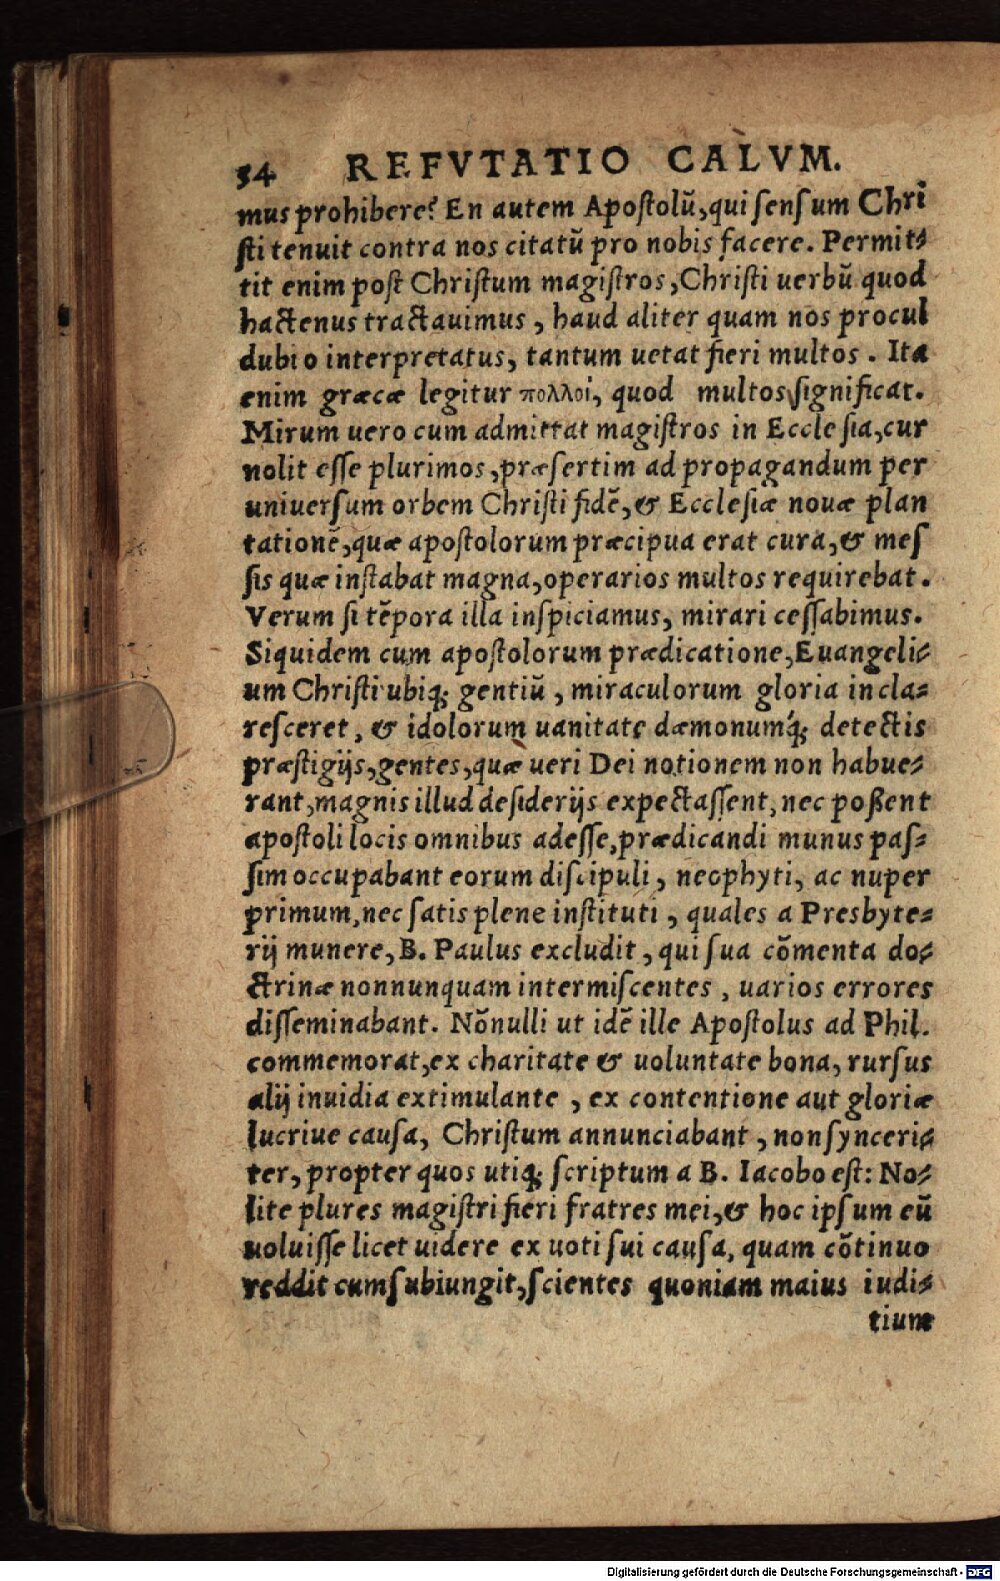 54 REFVTATIO CALVM.
mus prohibere? En autem Apoſtolũ, qui ſenſum Chri
ſti tenuit contra nos citatũ pro nobis facere. Permit⸗
tit enim poſt Chriſtum magiſtros, Chriſti uerbũ quod
hactenus tractauimus, haud aliter quam nos procul
dubio interpretatus, tantum uetat fieri multos. Ita
enim græcæ legitur πολλοί, quod multos ſignificat.
Mirum uero cum admittat magiſtros in Eccleſia, cur
nolit eſſe plurimos, præſertim ad propagandum per
uniuerſum orbem Chriſti fidẽ, & Eccleſiæ nouæ plan
tationẽ, quæ apoſtolorum præcipua erat cura, & meſ
ſis quæ inſtabat magna, operarios multos requirebat.
Verum ſi tẽpora illa inſpiciamus, mirari ceſſabimus.
Siquidem cum apoſtolorum prædicatione, Euangeli⸗
um Chriſti ubiq; gentiũ, miraculorum gloria incla⸗
reſceret, & idolorum uanitate dæmonumq́; detectis
præſtigijs, gentes, quæ ueri Dei notionem non habue⸗
rant, magnis illud deſiderijs expectaſſent, nec poßent
apoſtoli locis omnibus adeſſe, prædicandi munus paſ⸗
ſim occupabant eorum diſcipuli, neophyti, ac nuper
primum, nec ſatis plene inſtituti, quales a Presbyte⸗
rij munere, B. Paulus excludit, qui ſua cõmenta do⸗
ctrinæ nonnunquam intermiſcentes, uarios errores
diſſeminabant. Nõnulli ut idẽ ille Apoſtolus ad Phil.
commemorat, ex charitate & uoluntate bona, rurſus
alij inuidia extimulante, ex contentione aut gloriæ
lucriue cauſa, Chriſtum annunciabant, non ſynceri⸗
ter, propter quos utiq; ſcriptum a B. Iacobo eſt: No⸗
lite plures magiſtri fieri fratres mei, & hoc ipſum eũ
uoluiſſe licet uidere ex uoti ſui cauſa, quam cõtinuo
reddit cum ſubiungit, ſcientes quoniam maius iudi⸗
tium
Digitalisierung gefördert durch die Deutsche Forschungsgemeinschaft - DFG